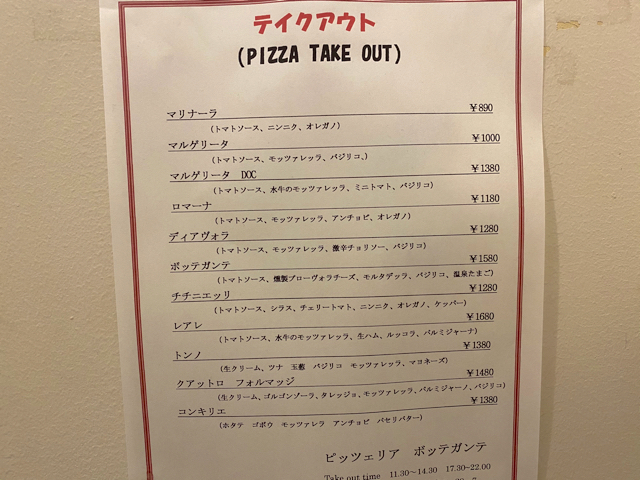 テイクアウト
(PIZZA TAKE OUT)
マリナーラ ￥890
(トマトソース、ニンニク、オレガノ)
マルゲリータ ￥1000
(トマトソース、モッツァレッラ、バジリコ、)
マルゲリータ DOC ￥1380
(トマトソース、水牛のモッツァレッラ、ミニトマト、バジリコ)
ロマーナ ￥1180
(トマトソース、モッツァレッラ、アンチョビ、オレガノ)
ディアヴォラ ￥1280
(トマトソース、モッツァレッラ、激辛チョリソー、バジリコ)
ボッテガンテ ￥1580
(トマトソース、燻製プローヴォラチーズ、モルタデッラ、バジリコ、温泉たまご)
チチニエッリ ￥1280
(トマトソース、シラス、チェリートマト、ニンニク、オレガノ、ケッパー)
レアレ ￥1680
(トマトソース、水牛のモッツァレッラ、生ハム、ルッコラ、パルミジャーナ)
トンノ ￥1380
(生クリーム、ツナ 玉葱 バジリコ モッツァレッラ、マヨネーズ)
クアットロ フォルマッジ ￥1480
(生クリーム、ゴルゴンゾーラ、タレッジョ、モッツァレッラ、パルミジャーノ、バジリコ)
コンキリエ ￥1380
(ホタテ ゴボウ モッツァレラ アンチョビ パセリバター)
ピッツェリア ボッテガンテ
Take out time 11.30～14.30 17.30-22.00